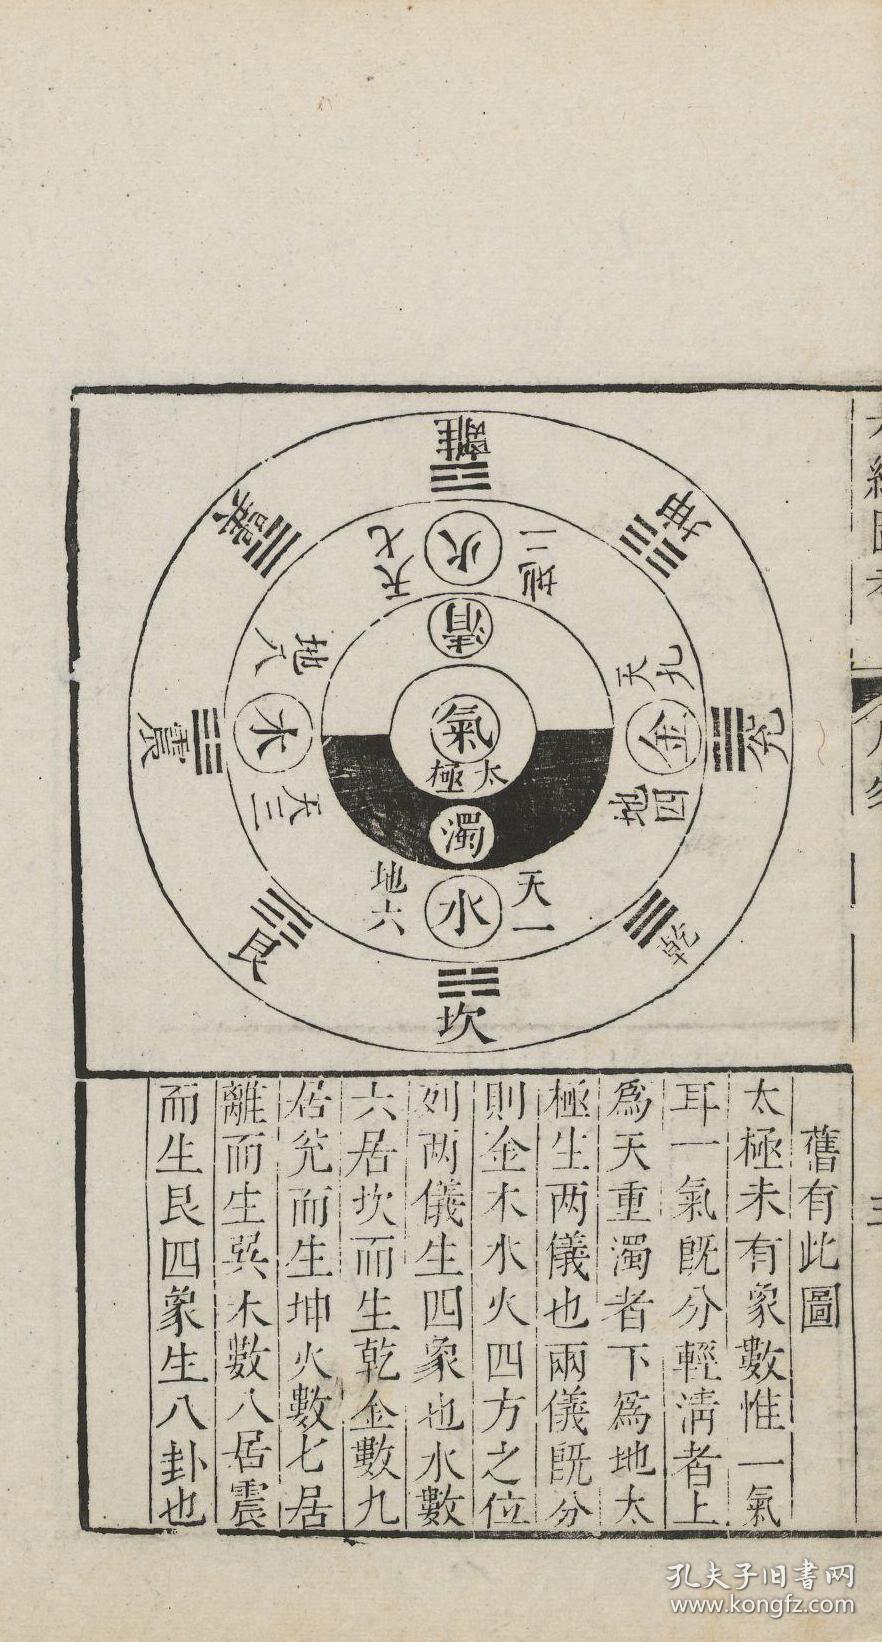 離
坤
兌
乾
坎
艮
震
巽
火
地二
天七
金
天九
地四
水
天一
地六
木
天三
地八
清
氣
太極
濁
舊有此圖
太極未有象數惟一氣
耳一氣旣分輕淸者上
爲天重濁者下爲地太
極生两儀也兩儀旣分
則金木水火四方之位
列两儀生四象也水數
六居坎而生乾金數九
居兊而生坤火數七居
離而生巽木數八居震
而生艮四象生八卦也
孔夫子旧书网
www.kongfz.com